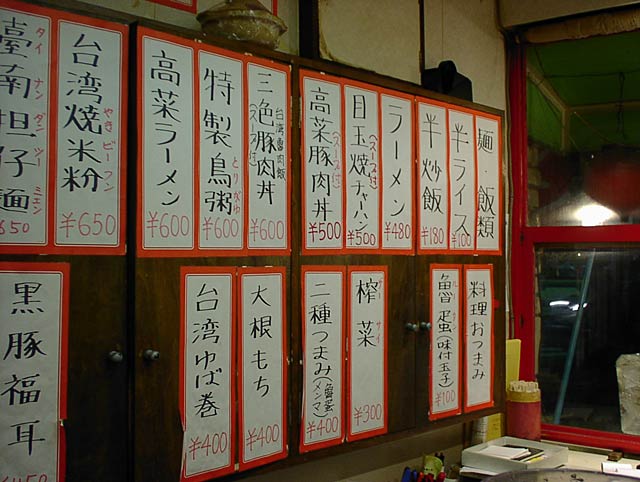 麺・飯類
半ライス
¥100
半炒飯
¥180
ラーメン
¥480
目玉焼チャーハン
(スープ付)
¥500
高菜豚肉丼
(スープ付)
¥500
三色豚肉丼
(スープ付)
台湾魯肉飯
¥600
特製鳥粥
とりがゆ
¥600
高菜ラーメン
¥600
台湾焼米粉
やきビーフン
¥650
臺南担仔麺
タイナンダンツーミェン
650
料理おつまみ
魯蛋(味付玉子)
¥100
榨菜
ザーサイ
¥300
二種つまみ(魯蛋メンマ)
¥400
大根もち
¥400
台湾ゆば巻
¥400
黒豚福耳
¥450